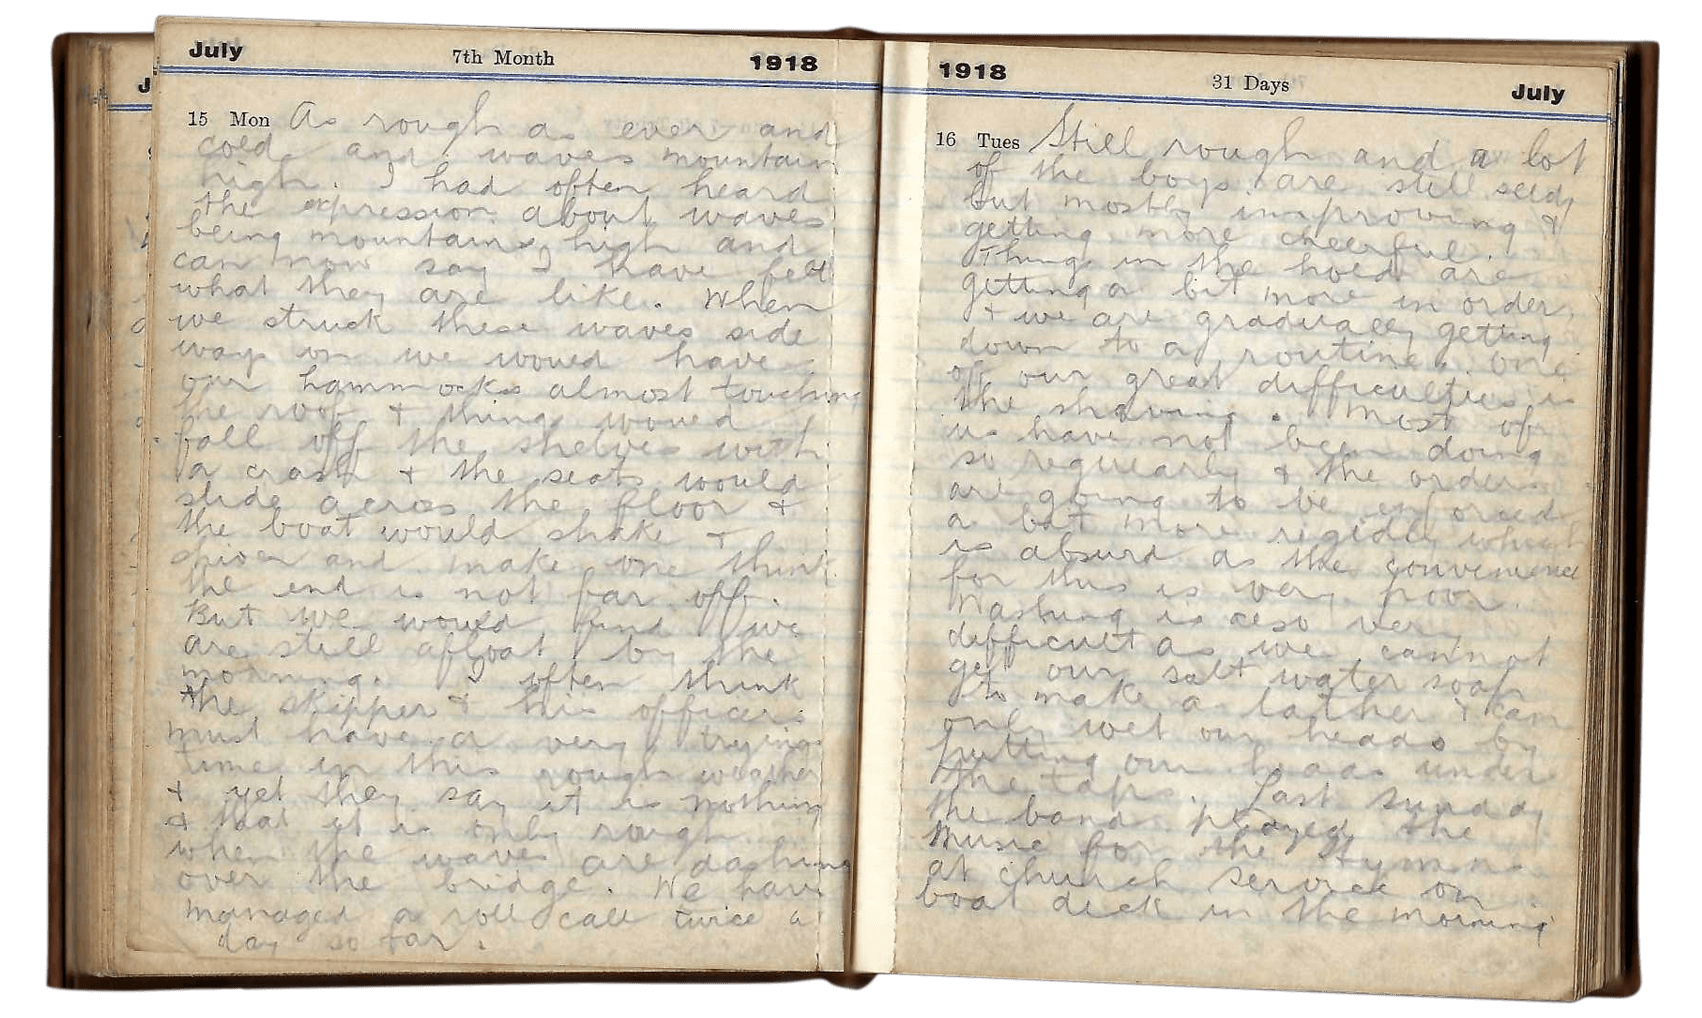 July 7th Month 1918
15 Mon As rough as ever and
cold and waves mountain
high. I had often heard
the expression about waves
being mountains high and
can now say I have felt
what they are like. When
we struck these waves side
ways on we would have
our hammocks almost touching
the roof & things would
fall off the shelves with
a crash & the seats would
slide across the floor &
the boat would shake &
shiver and make one think
the end is not far off.
But we would find we
are still afloat by the
morning. I often think
the skipper & his officers
must have a very trying
time in this rough weather
& yet they say it is nothing
& that it is only rough
when the waves are dashing
over the bridge. We have
managed a roll call twice a
day so far.
1918 31 Days July
16 Tues Still rough and a lot
of the boys are still seedy
but mostly improving &
getting more cheerful.
Things in the hold are
getting a bit more in order,
& we are gradually getting
down to a routine. One
of our great difficulties is
the shaving. Most of
us have not been doing
so regularly & the orders
are going to be enforced
a bit more rigidly which
is absurd as the convenience
for this is very poor.
Washing is also very
difficult as we cannot
get our salt water soap
to make a lather & can
only wet our heads by
putting our heads under
the taps. Last Sunday
the band played the
music for the Hymns
at church service on
boat deck in the morning